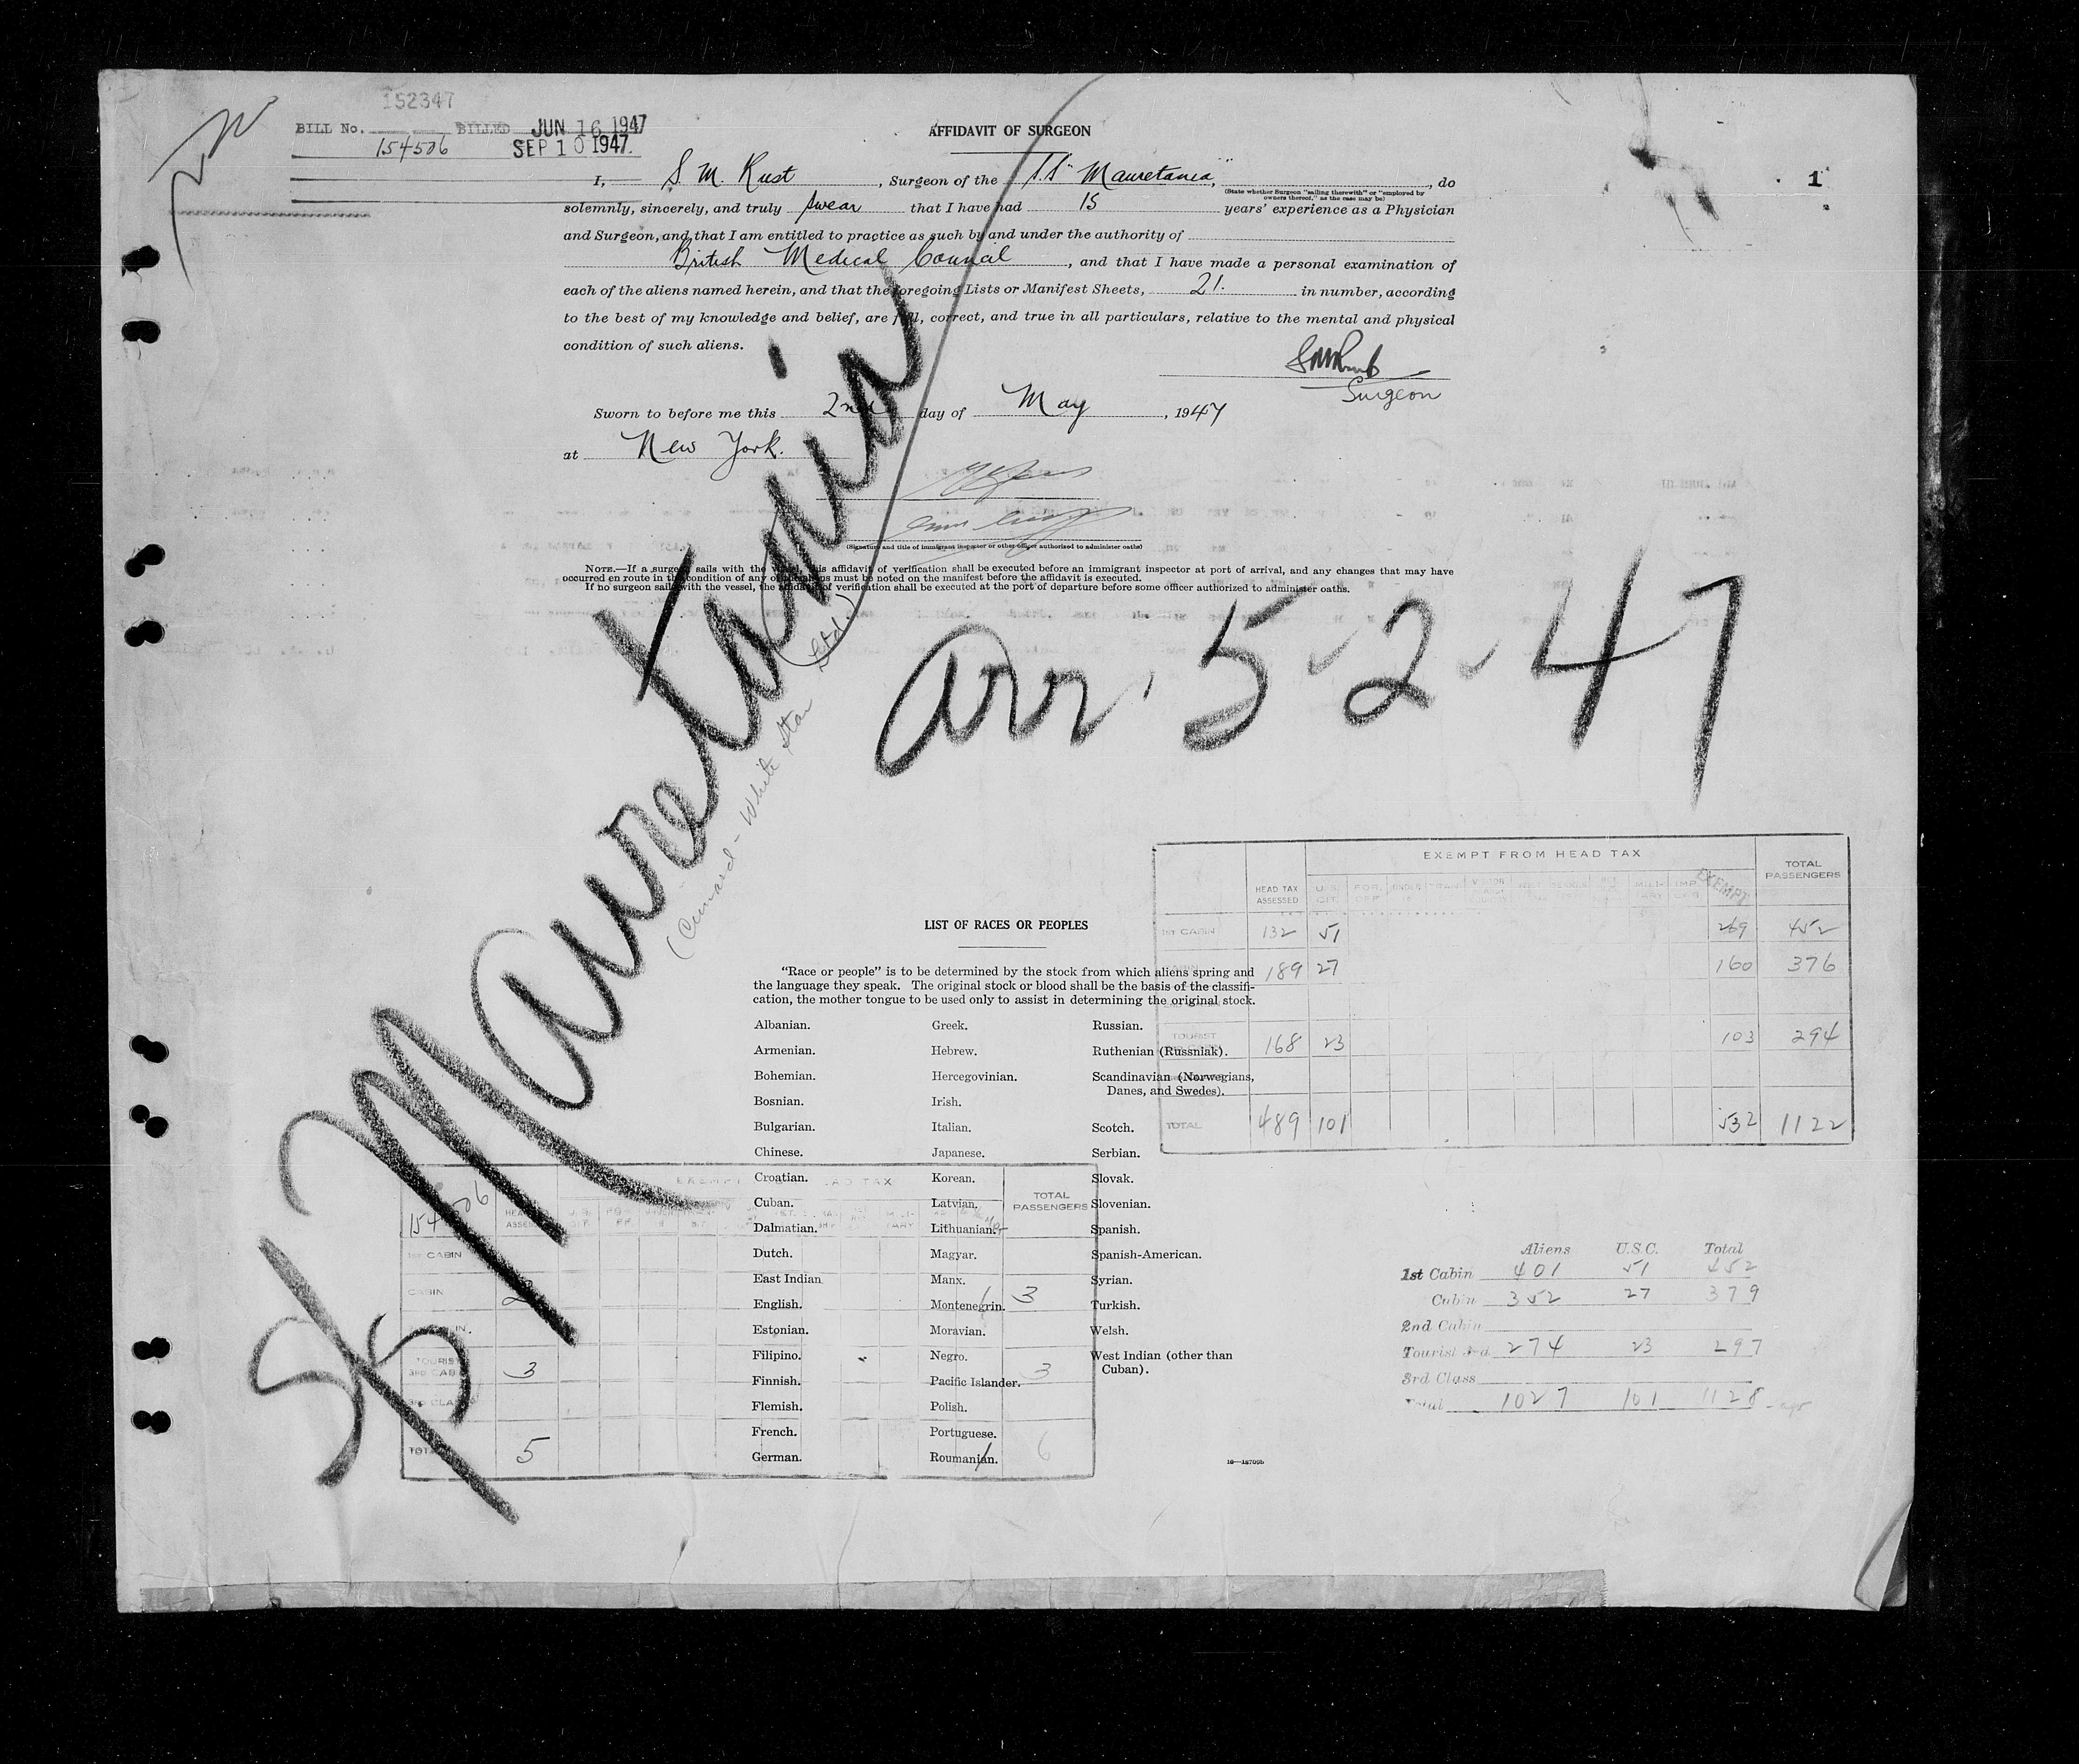 152347
BILL No. BILLED JUN 16 1947
154506 SEP 10 1947
AFFIDAVIT OF SURGEON
1
I, S. M. Rust, Surgeon of the S.S. "Mauretania", do
(State whether Surgeon "sailing therewith" or "employed by
owners thereof," as the case may be)
solemnly, sincerely, and truly swear that I have had 15 years' experience as a Physician
and Surgeon, and that I am entitled to practice as such by and under the authority of
British Medical Council, and that I have made a personal examination of
each of the aliens named herein, and that the foregoing Lists or Manifest Sheets, 21. in number, according
to the best of my knowledge and belief, are full, correct, and true in all particulars, relative to the mental and physical
condition of such aliens.
Surgeon
Sworn to before me this 2nd day of May, 1947
at New York.
(Signature and title of immigrant inspector or other officer authorized to administer oaths)
NOTE.—If a surgeon sails with the vessel, this affidavit of verification shall be executed before an immigrant inspector at port of arrival, and any changes that may have
occurred en route in the condition of any of the aliens must be noted on the manifest before the affidavit is executed.
If no surgeon sails with the vessel, the affidavit of verification shall be executed at the port of departure before some officer authorized to administer oaths.
S/S Mauretania
(Cunard - White Star Ltd.)
arr. 5-2-47
EXEMPT FROM HEAD TAX
HEAD TAX ASSESSED U.S. CIT. FOR. OFF. UNDER 16 MILITARY EXEMPT TOTAL PASSENGERS
1ST CABIN 132 51 269 452
CABIN 189 27 160 376
TOURIST 168 23 103 294
TOTAL 489 101 532 1122
LIST OF RACES OR PEOPLES
"Race or people" is to be determined by the stock from which aliens spring and
the language they speak. The original stock or blood shall be the basis of the classifi-
cation, the mother tongue to be used only to assist in determining the original stock.
Albanian. Greek. Russian.
Armenian. Hebrew. Ruthenian (Russniak).
Bohemian. Hercegovinian. Scandinavian (Norwegians,
Danes, and Swedes).
Bosnian. Irish.
Bulgarian. Italian. Scotch.
Chinese. Japanese. Serbian.
Croatian. Korean. Slovak.
Cuban. Latvian. Slovenian.
Dalmatian. Lithuanian. Spanish.
Dutch. Magyar. Spanish-American.
East Indian Manx. Syrian.
English. Montenegrin. Turkish.
Estonian. Moravian. Welsh.
Filipino. Negro. West Indian (other than
Cuban).
Finnish. Pacific Islander.
Flemish. Polish.
French. Portuguese.
German. Roumanian.
154506
TOTAL
PASSENGERS
1ST CABIN
CABIN 2 1 3
TOURIST
3RD CABIN 3 3
TOTAL 5 1 6
Aliens U.S.C. Total
1st Cabin 401 51 452
Cabin 352 27 379
2nd Cabin
Tourist 3rd 274 23 297
3rd Class
Total 1027 101 1128
16—18709b